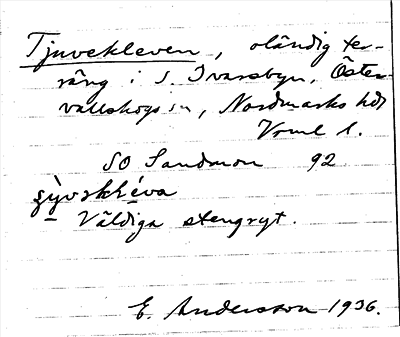 Tjuvekleven, oländig ter-
räng i S. Ivarsbyn, Öster-
vallskogs sn, Nordmarks hd
Vrml l.
SO Sandmon 92
Väldiga stengryt.
E. Andersson 1936.